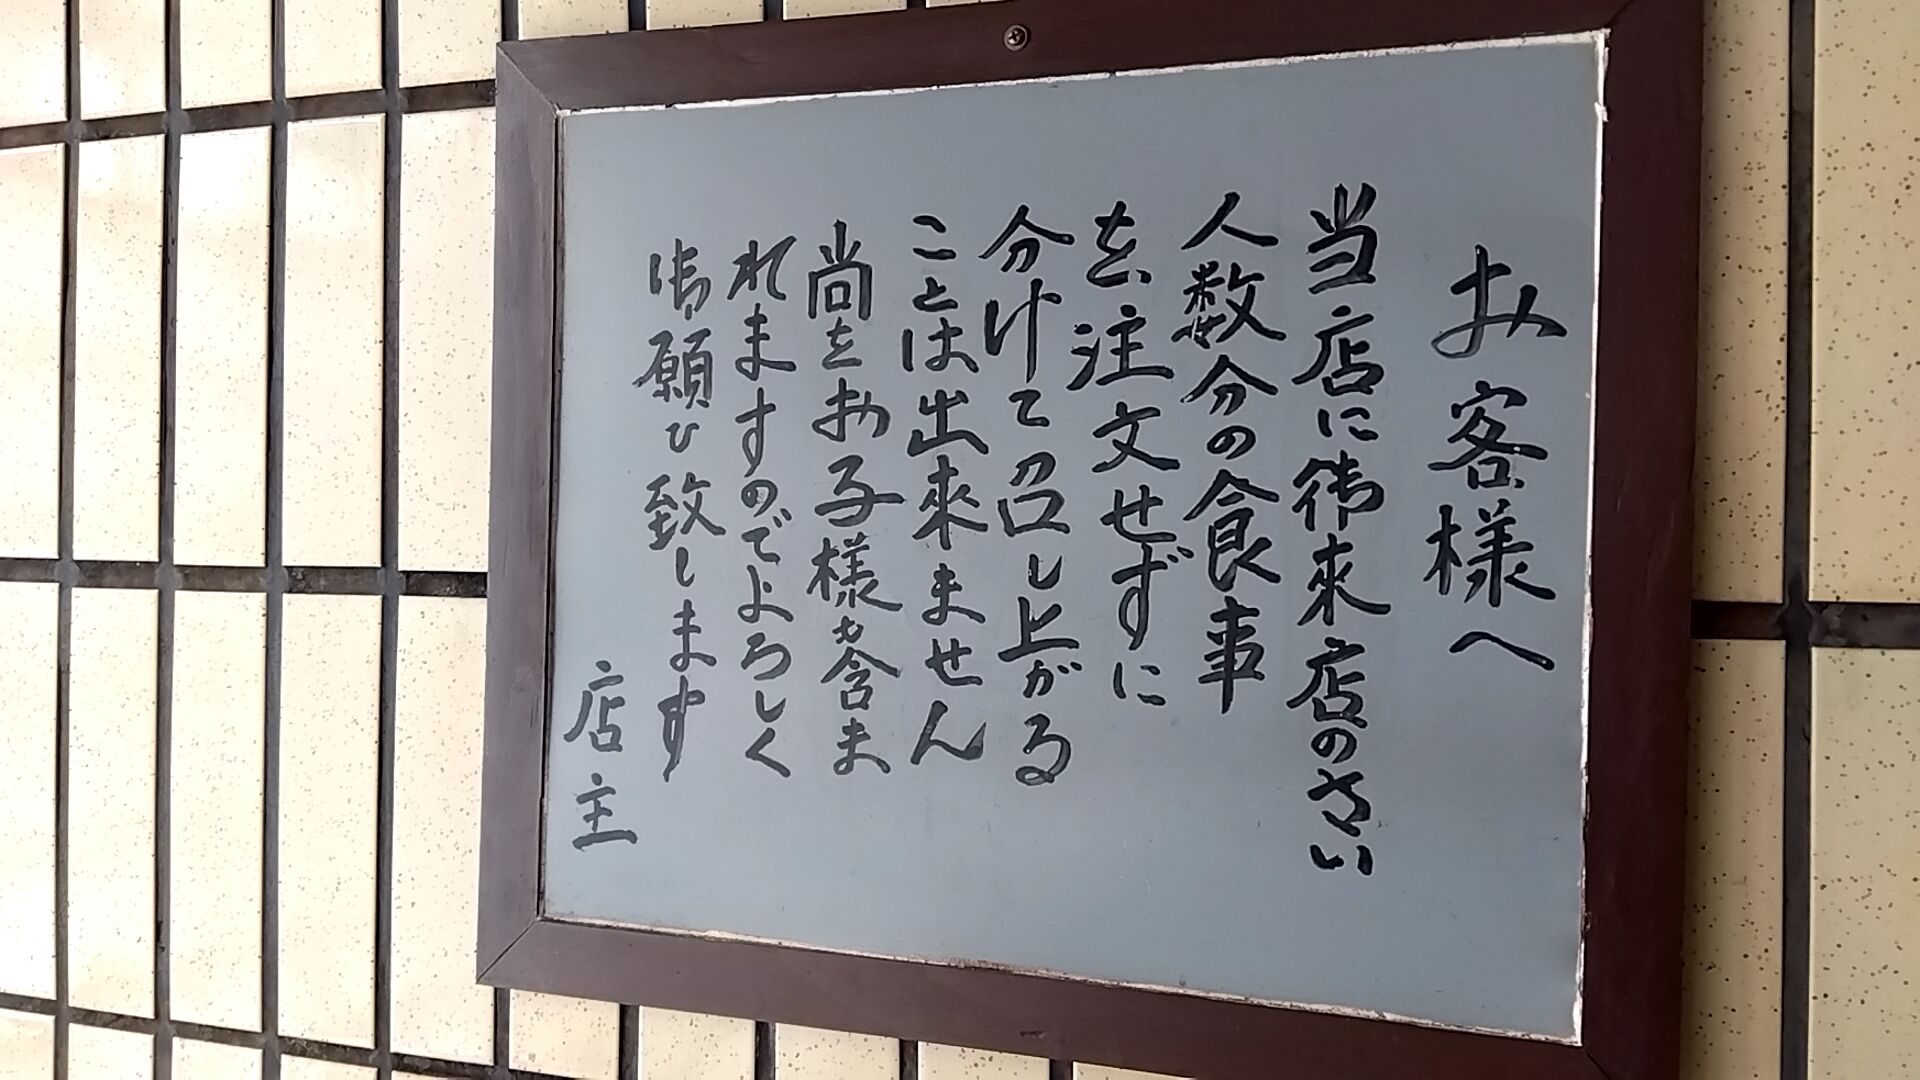 お客様へ
当店に御來店のさい
人数分の食事
を注文せずに
分けて召し上がる
ことは出來ません
尚をお子様も含ま
れますのでよろしく
御願ひ致します
店主